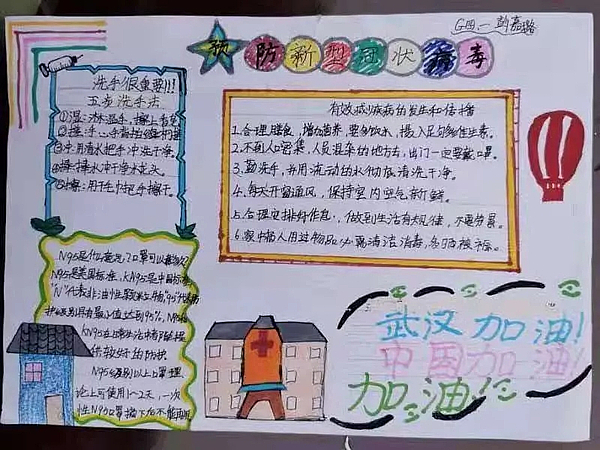 G四.一 彭嘉璐
预防新型冠状病毒
洗手很重要!!!
五步洗手法
①湿:水湿手,擦上肥皂
②搓:手心手背指缝相搓
③冲:用清水把手冲洗干净。
④捧:捧水冲干净水龙头。
⑤擦:用干毛巾把手擦干。
有效减少疾病的发生和传播
1.合理膳食,增加营养,要多饮水,摄入足够维生素。
2.不到人口密集,人员混杂的地方去,出门一定要戴口罩。
3.勤洗手,并用流动的水彻底清洗干净。
4.每天开窗通风,保持室内空气新鲜。
5.合理安排好作息,做到生活有规律,不要劳累。
6.家中病人用过物品必需清洁消毒,
N95是什么意思?口罩可以
N95是美国标准,KN95是中国标准
"N"代表非油性颗粒物,"95"代表
护级别最小值达到95%,
KN95在日常生活中
供较好的防护
N95级别以上口罩理
论上可使用1~2天,一次
性N95口罩摘下后不能再用
武汉加油!
中国加油!
加油!